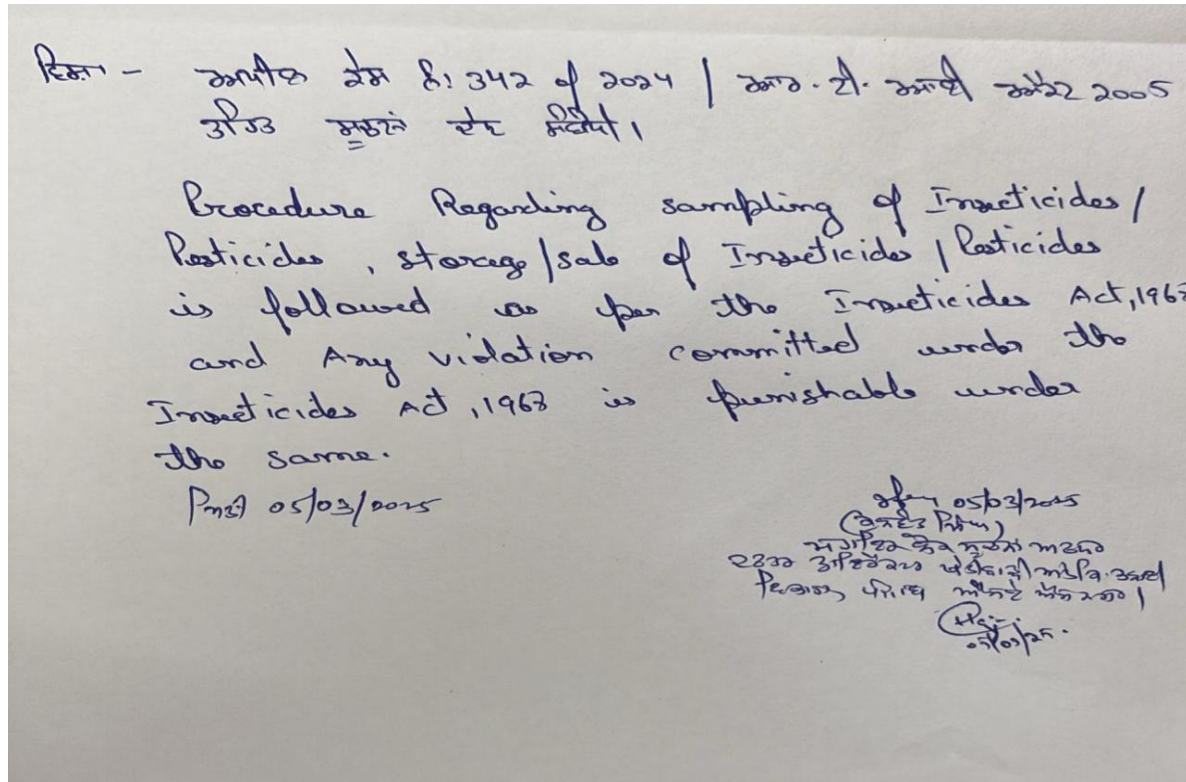 ਵਿਸ਼ਾ - ਅਪੀਲ ਕੇਸ ਨੰ: 342 of 2024 / ਆਰ.ਟੀ. ਆਈ ਐਕਟ 2005
ਤਹਿਤ ਸੂਚਨਾਂ ਦੇਣ ਸੰਬੰਧੀ।
Procedure Regarding sampling of Insecticides/
Pesticides, storage/sale of Insecticides/Pesticides
is followed as per the Insecticides Act, 1968
and Any violation committed under the
Insecticides Act, 1968 is punishable under
the same.
ਮਿਤੀ 05/03/2025
05/03/2025
ਸਹਾਇਕ ਲੋਕ ਸੂਚਨਾ ਅਫਸਰ
ਦਫਤਰ ਡਾਇਰੈਕਟਰ ਖੇਤੀਬਾੜੀ ਅਤੇ ਕਿ. ਭਲਾਈ
ਵਿਭਾਗ, ਪੰਜਾਬ
05/03/25.